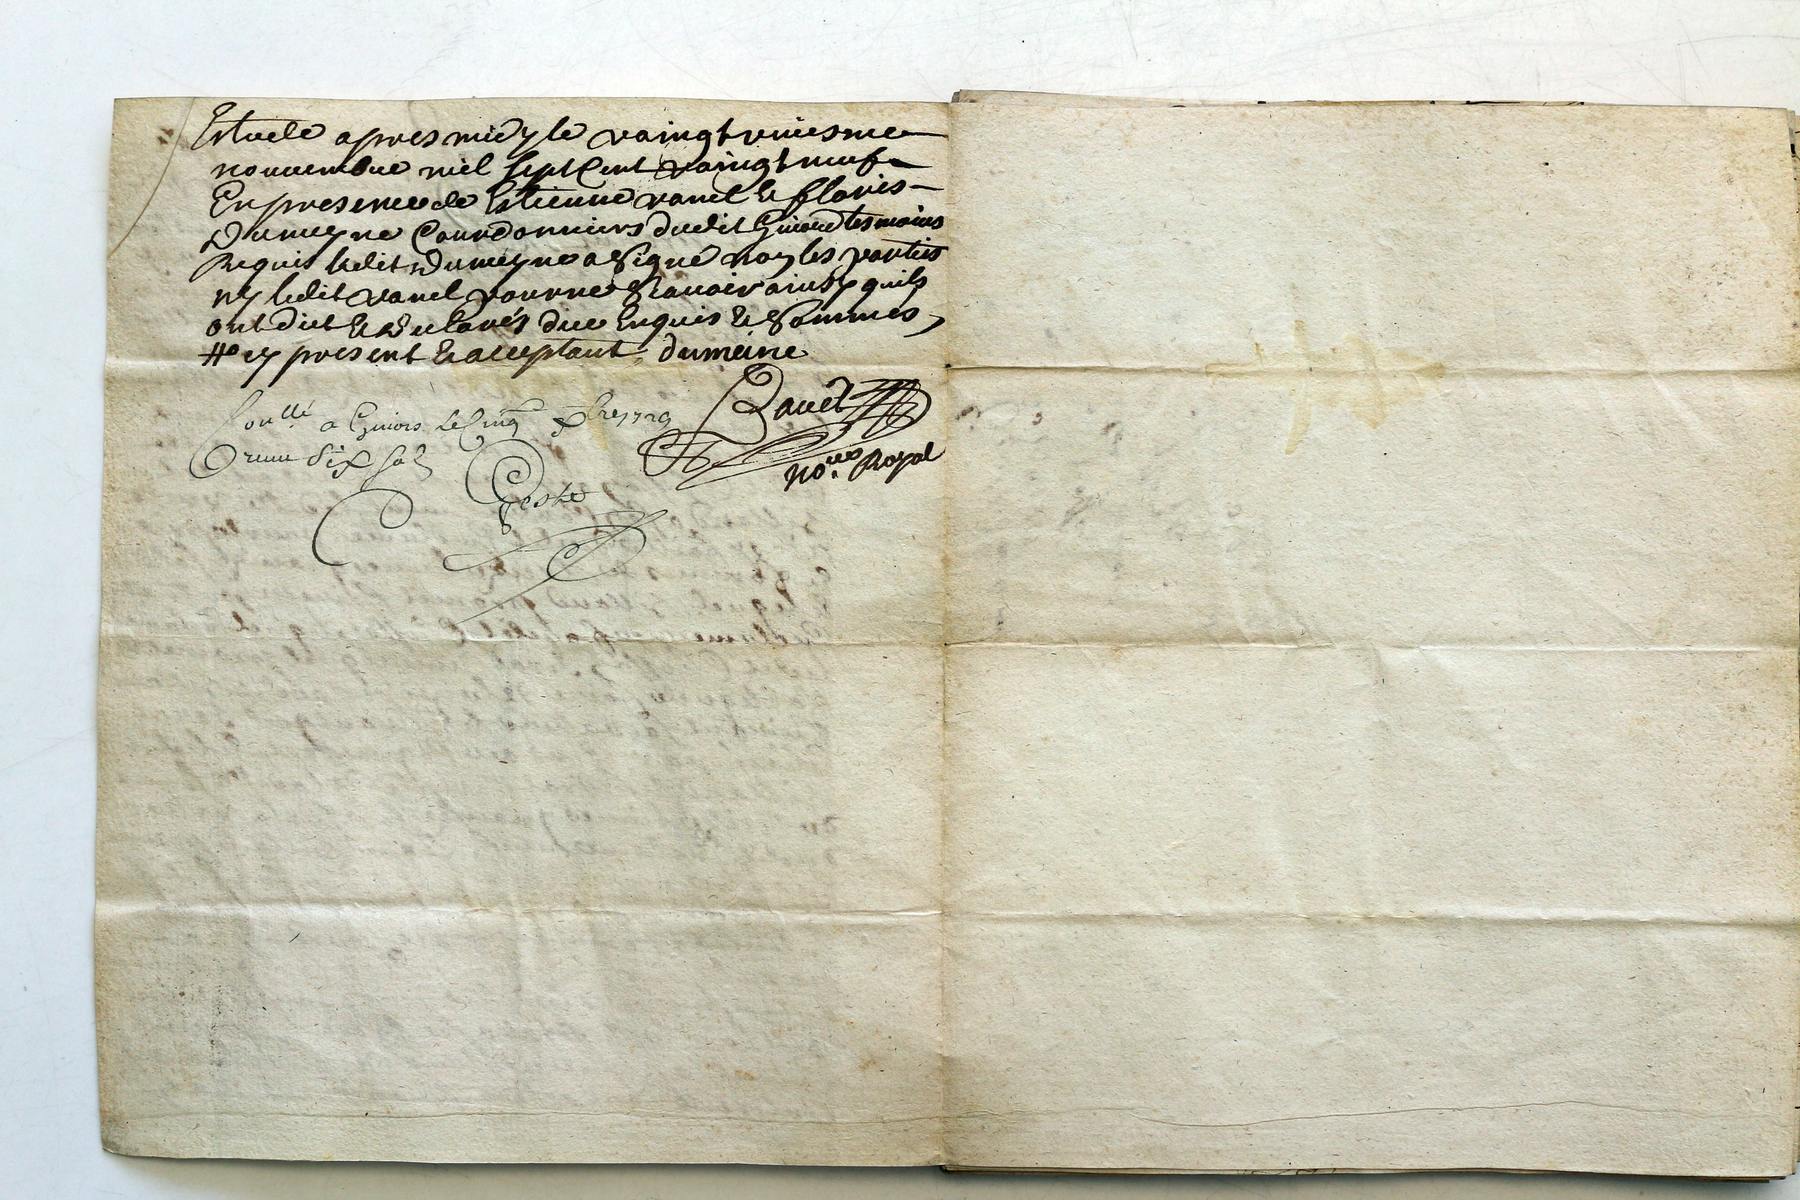 Estude apres midy le vaingt uniesme
nouuembre mil sept Cent vaingt neuf
En presence de Estienne vanel & floris
Dumeyne Courdonniers dudit Giuors tesmoins
Requis ledit Dumeyne a Signé non les parties
ny ledit vanel pour ne Scauoir ainsy quils
ont dict & declarés due Enquis & Sommés,
#o cy present & acceptant dumeine
Conllé a Giuors le Cinq xbre 1729
Receu Six Sols
No.re Royal